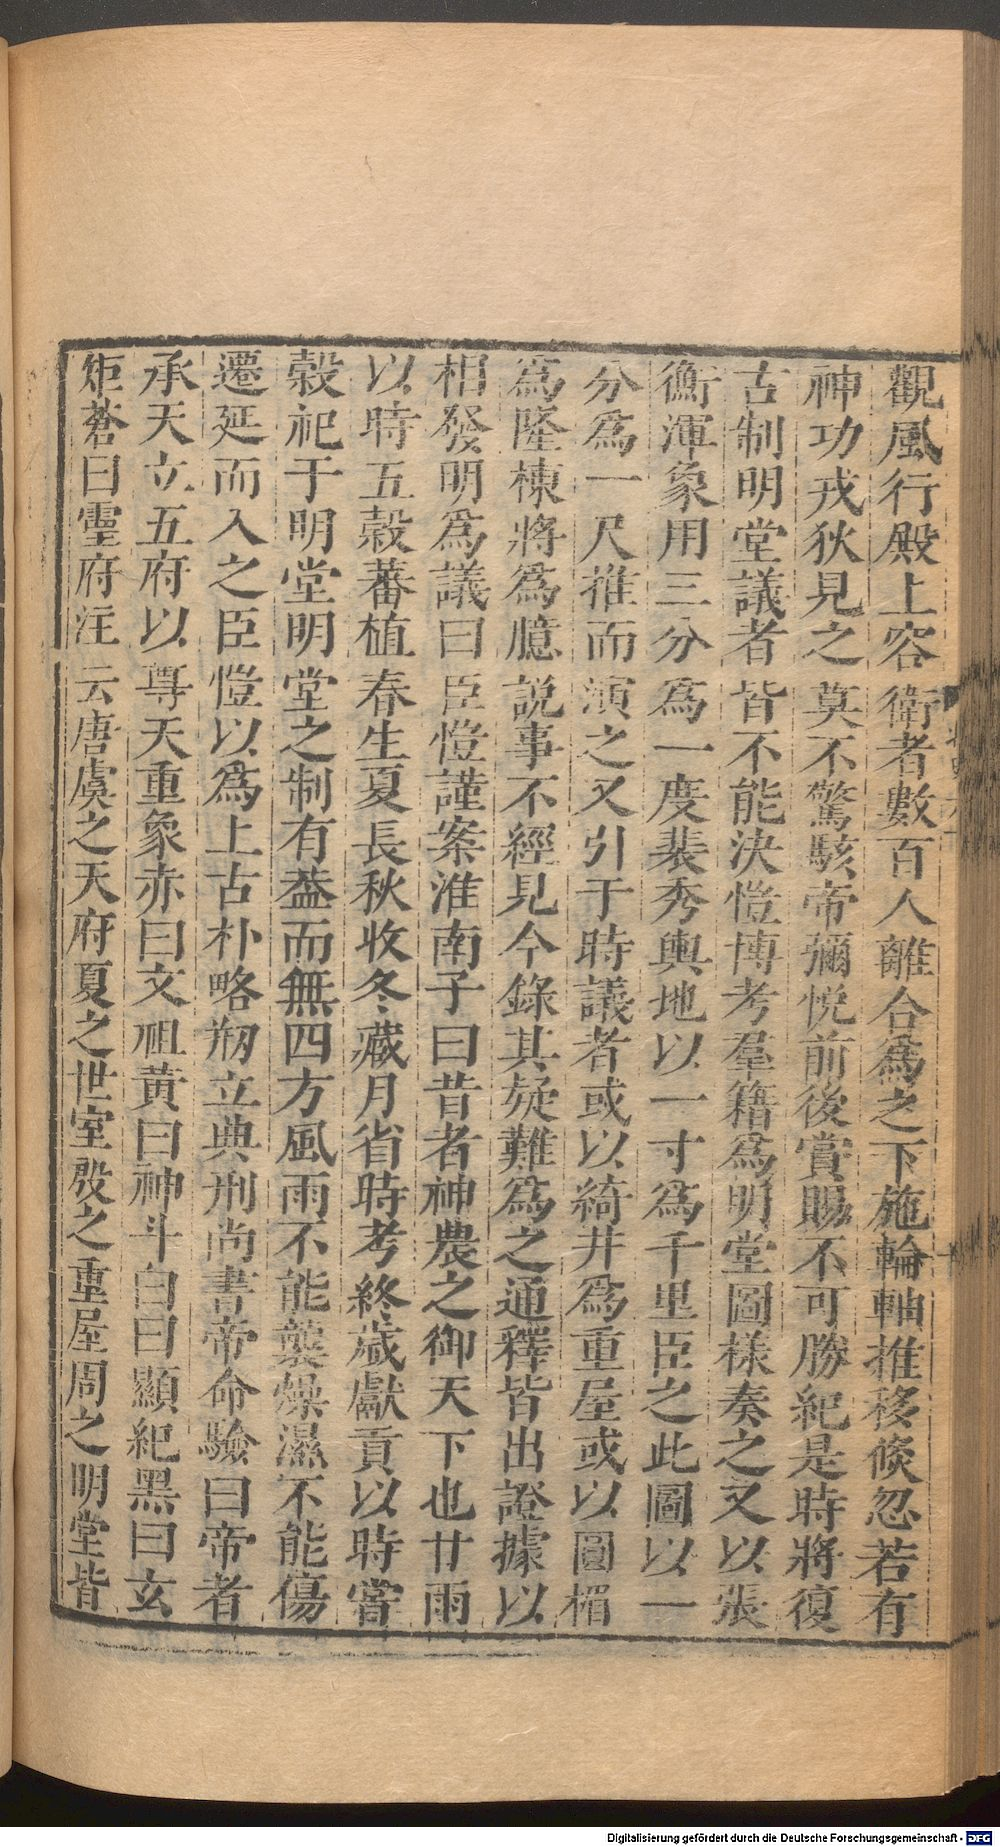 觀風行殿上容衛者數百人離合爲之下施輪軸推移倐忽若有
神功戎狄見之莫不驚駭帝彌悅前後賞賜不可勝紀是時將復
古制明堂議者皆不能決愷博考羣籍爲明堂圖樣奏之又以張
衡渾象用三分爲一度裴秀輿地以一寸爲千里臣之此圖以一
分爲一尺推而演之又引于時議者或以綺井爲重屋或以圓楣
爲隆棟將爲臆說事不經見今錄其疑難爲之通釋皆出證據以
相發明爲議曰臣愷謹案淮南子曰昔者神農之御天下也甘雨
以時五穀蕃植春生夏長秋收冬藏月省時考終歲獻貢以時嘗
穀祀于明堂明堂之制有葢而無四方風雨不能襲燥濕不能傷
遷延而入之臣愷以爲上古朴略剏立典刑尚書帝命驗曰帝者
承天立五府以尊天重象赤曰文祖黃曰神斗白曰顯紀黑曰玄
矩蒼曰靈府注云唐虞之天府夏之世室殷之重屋周之明堂皆
Digitalisierung gefördert durch die Deutsche Forschungsgemeinschaft - DFG